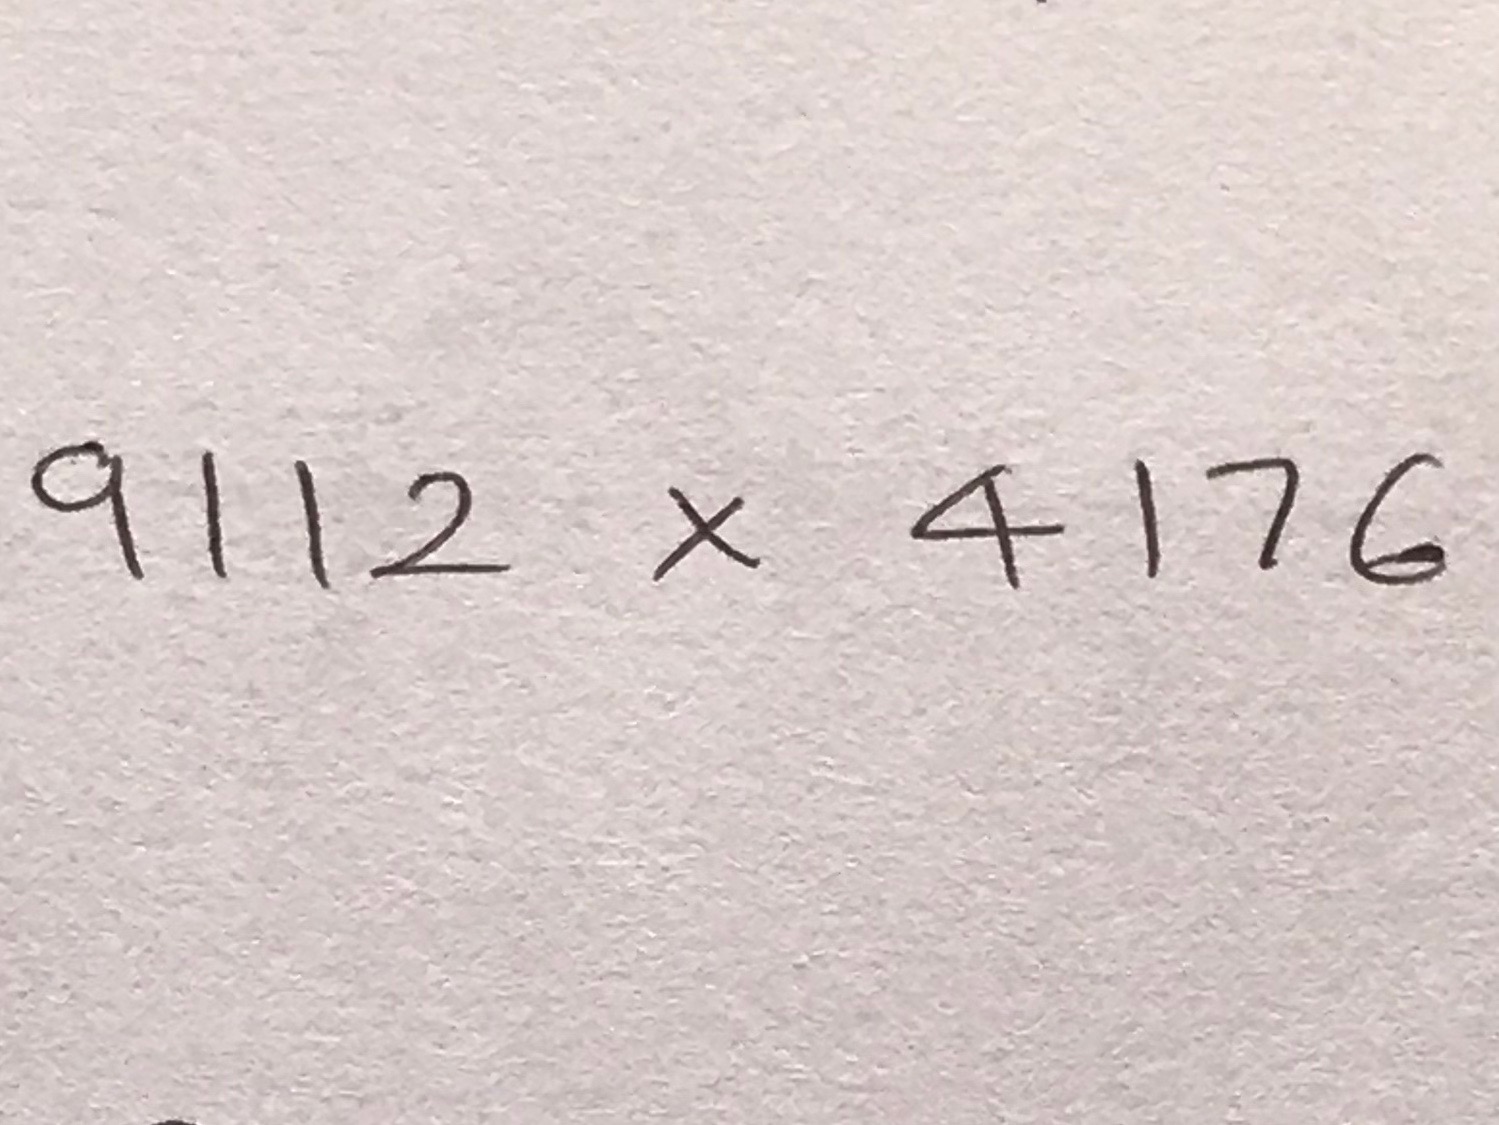 9112 × 4176